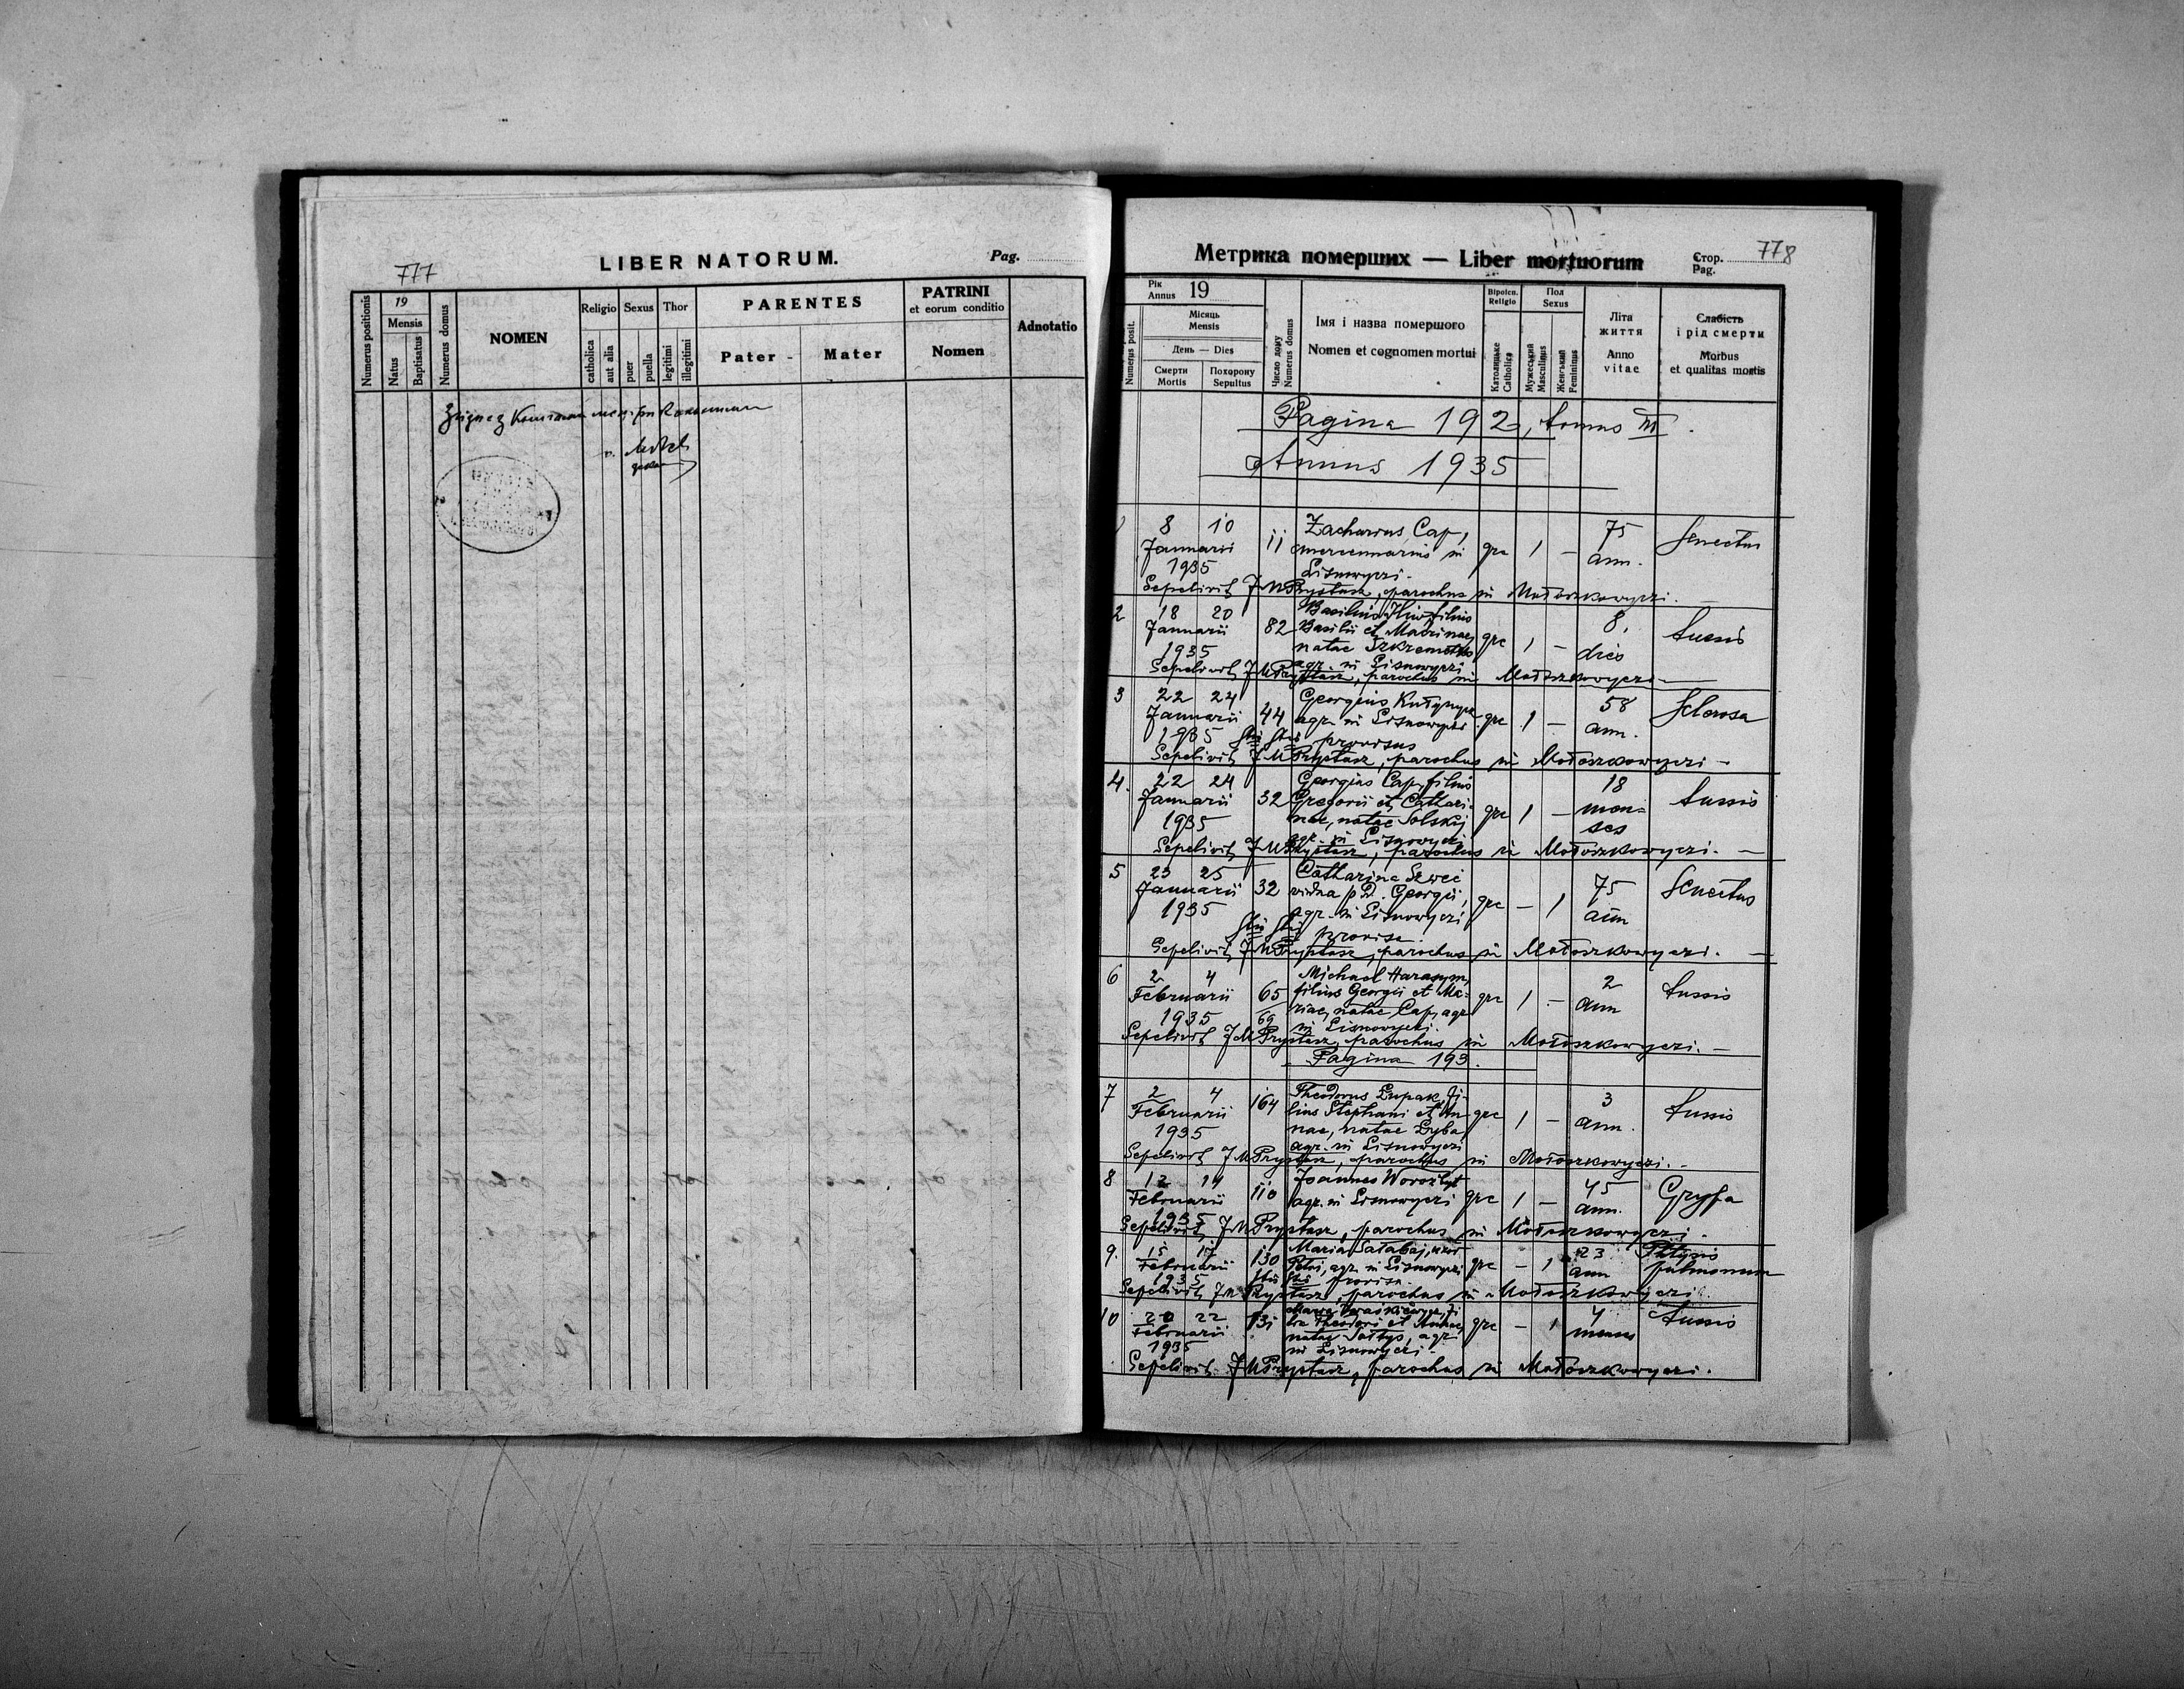 777
LIBER NATORUM.
Pag.
Numerus positionis
19
Mensis
Natus
Baptisatus
Numerus domus
NOMEN
Religio
catholica
aut alia
Sexus
puer
puella
Thor
legitimi
illegitimi
PARENTES
Pater - Mater
PATRINI
et eorum conditio
Nomen
Adnotatio
Метрика померших — Liber mortuorum
Стор.
Pag.
778
Numerus posit.
Рік
Annus 19
Місяць
Mensis
День — Dies
Смерти
Mortis
Похорону
Sepultus
Число дому
Numerus domus
Імя і назва помершого
Nomen et cognomen mortui
Віроісп.
Religio
Католицьке
Catholica
Пол
Sexus
Мужеський
Masculinus
Женський
Femininus
Літа
життя
Anno
vitae
Слабість
і рід смерти
Morbus
et qualitas mortis
Pagina 192, tomus III.
Annus 1935
1 8 10 Zacharias Cap, 75 Senectus
Januarii 11 mercennarius in grc 1 — ann.
1935 Lisnowyczi.
Sepelivit J M Prystasz, parochus in Mołoszkowyczi.
2 18 20 Basilius filius 8
Januarii 82 Basilii et Marinae, grc 1 — dies tussis
1935 natae
agr. in Lisnowyczi
Sepelivit J M Prystasz, parochus in Mołoszkowyczi
3 22 24 Georgius 58 Sclerosa
Januarii 44 agr. in Lisnowyczi grc 1 — ann.
1935 provisus
Sepelivit J M Prystasz, parochus in Mołoszkowyczi —
4. 22 24 Georgius Cap, filius 18
Januarii 32 Gregorii et Cathari- grc 1 — men- tussis
1935 nae, natae Solskij ses
agr. in Lisnowyczi
Sepelivit J M Prystasz, parochus in Mołoszkowyczi. —
5 23 25 Catharina Szwec 75 Senectus
Januarii 32 vidua p. D. Georgii, grc — 1 ann
1935 agr. in Lisnowyczi
provisa.
Sepelivit J M Prystasz, parochus in Mołoszkowyczi. —
6 2 4 Michael Harasym, 2 tussis
Februarii 65 filius Georgii et Ma- grc 1 — ann
1935 69 riae, natae Cap, agr
in Lisnowyczi.
Sepelivit J M Prystasz, parochus in Mołoszkowyczi. —
Pagina 193.
7 2 4 Theodorus Łupak, fi- 3 tussis
Februarii 164 lius Stephani et An- grc 1 — ann.
1935 nae, natae Dyba
agr. in Lisnowyczi
Sepelivit J M Prystasz, parochus in Mołoszkowyczi. -
8 12 14 Joannes 45 Grypa
Februarii 110 agr. in Lisnowyczi grc 1 — ann.
1935
Sepelivit J M Prystasz, parochus in Mołoszkowyczi.
9. 15 17 Maria Sałabaj, uxor 23 Phtysis
Februarii 130 Petri, agr. in Lisnowyczi grc — 1 ann pulmonum
1935 provisa.
Sepelivit J M Prystasz, parochus in Mołoszkowyczi.
10 20 22 4 tussis
Februarii 131 lia Theodori et grc — 1 menses
1935 natae Sołtys, agr.
in Lisnowyczi.
Sepelivit J M Prystasz, parochus in Mołoszkowyczi.